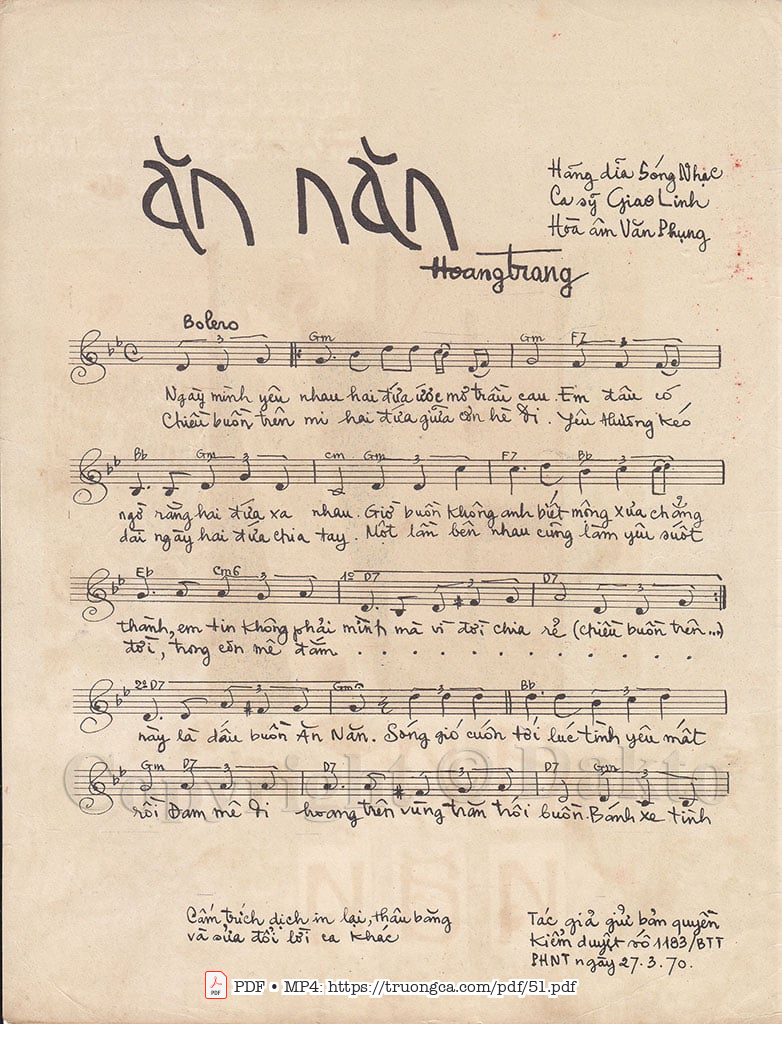 ăn năn
Hãng dĩa Sóng Nhạc
Ca sỹ Giao Linh
Hòa âm Văn Phụng
Hoangtrang
Bolero
Gm Gm F7
Ngày mình yêu nhau hai đứa ước mơ trầu cau. Em đâu có
Chiều buồn trên mi hai đứa giửa cơn hè đi. Yêu thương kéo
Bb Gm Cm Gm F7 Bb
ngờ rằng hai đứa xa nhau. Giờ buồn không anh biết mộng xưa chẳng
dài ngày hai đứa chia tay. Một lần bên nhau cũng làm yêu suốt
Eb Cm6 1º D7 D7
thành, em tin không phải mình mà vì đời chia rẻ (chiều buồn trên...)
đời, trong cơn mê đắm . . . . . . . . . .
2º D7 Gm Bb
này là dấu buồn Ăn Năn. Sóng gió cuốn tới lúc tình yêu mất
Gm D7 D7 D7 Gm
rồi Đam mê đi hoang trên vùng trăn trối buồn. Bánh xe tình
Copyright © Dakto
Cấm trích dịch in lại, thâu băng
và sửa đổi lời ca khác
Tác giả giử bản quyền
Kiểm duyệt số 1183/BTT
PHNT ngày 27.3.70.
PDF • MP4: https://truongca.com/pdf/51.pdf